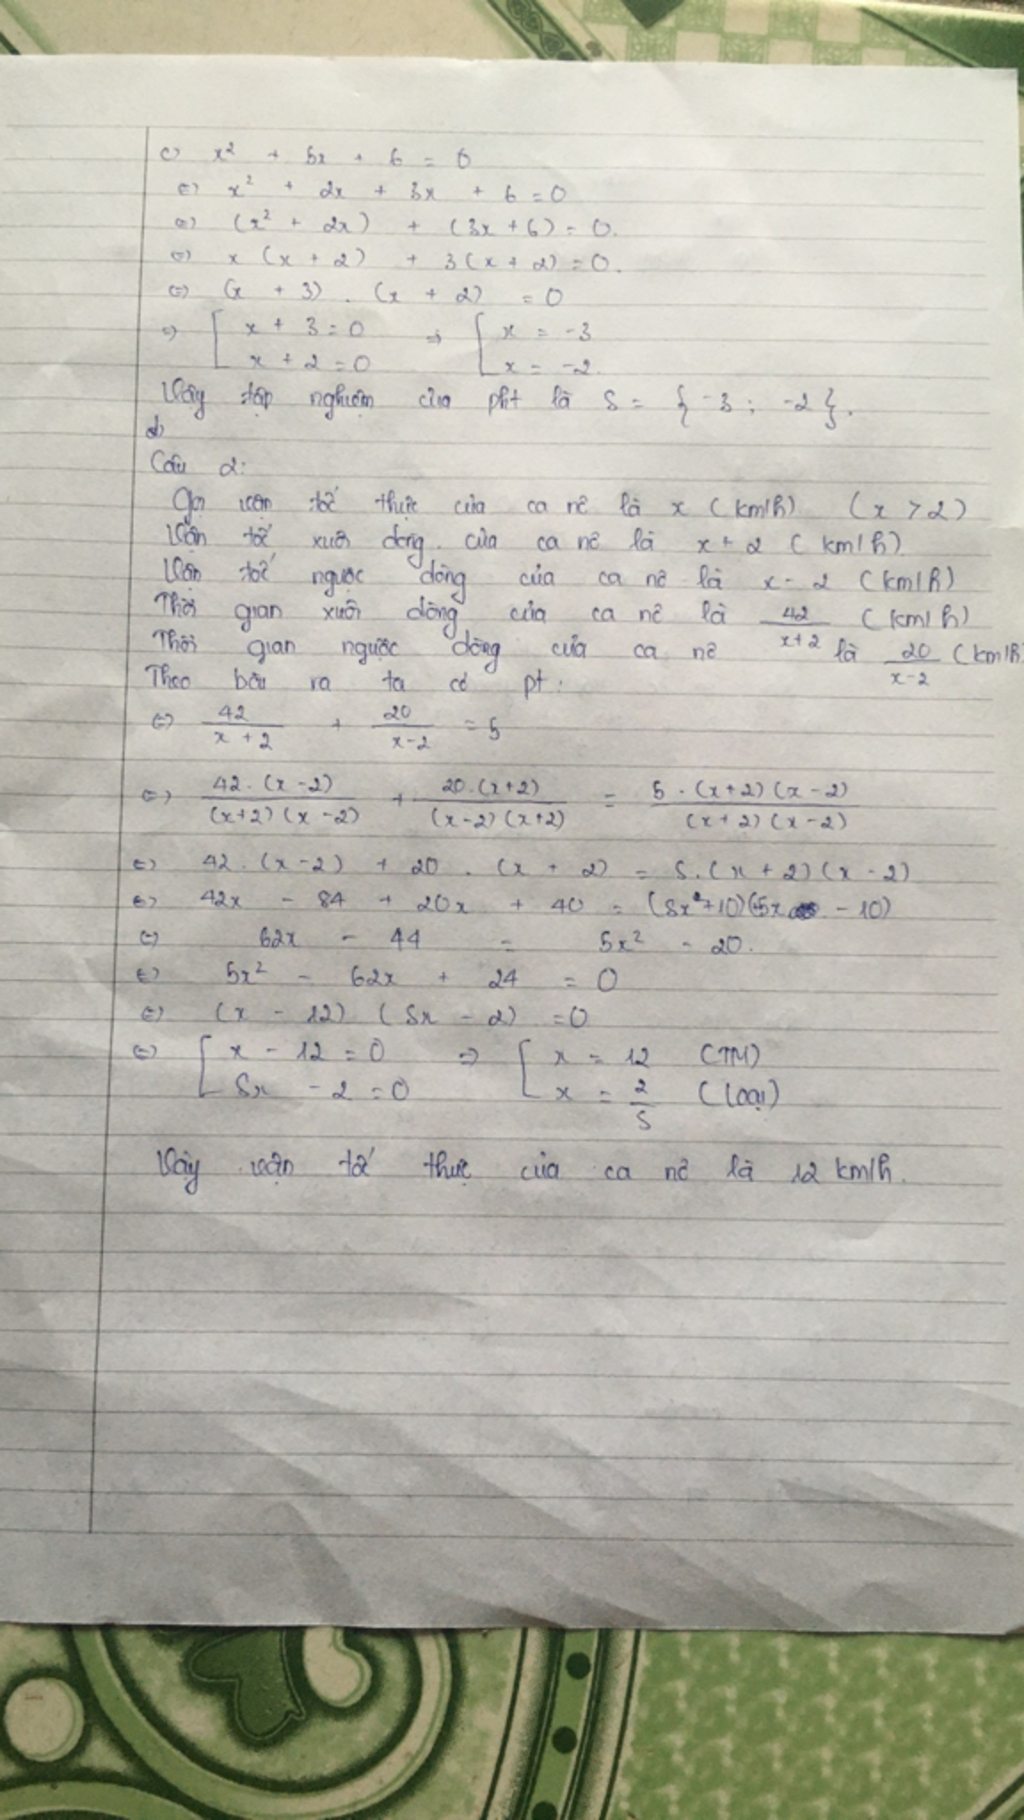 c) x² + 5x + 6 = 0
⇔ x² + 2x + 3x + 6 = 0
⇔ (x² + 2x) + (3x + 6) = 0.
⇔ x (x + 2) + 3(x + 2) = 0.
⇔ (x + 3) . (x + 2) = 0
⇒ [ x + 3 = 0 ⇒ [ x = -3
x + 2 = 0 x = -2.
Vậy tập nghiệm của pht là S = { -3 ; -2 }.
d)
Câu 2:
Gọi vận tố thực của ca nô là x (km/h) (x > 2)
Vận tố xuôi dòng. của ca nô là x + 2 (km/h)
Vận tố ngược dòng của ca nô là x - 2 (km/h)
Thời gian xuôi dòng của ca nô là 42/(x+2) (km/h)
Thời gian ngược dòng của ca nô là 20/(x-2) (km/h)
Theo bài ra ta có pt:
⇔ 42/(x + 2) + 20/(x-2) = 5
⇔ 42.(x-2)/((x+2)(x-2)) + 20.(x+2)/((x-2)(x+2)) = 5.(x+2)(x-2)/((x+2)(x-2))
⇔ 42.(x-2) + 20.(x + 2) = 5.(x + 2)(x - 2)
⇔ 42x - 84 + 20x + 40 = (5x²+10)(5x - 10)
⇔ 62x - 44 = 5x² - 20.
⇔ 5x² - 62x + 24 = 0
⇔ (x - 12) (5x - 2) = 0
⇔ [ x - 12 = 0 ⇒ [ x = 12 (TM)
5x - 2 = 0 x = 2/5 (loại)
Vậy vận tố thực của ca nô là 12 km/h.